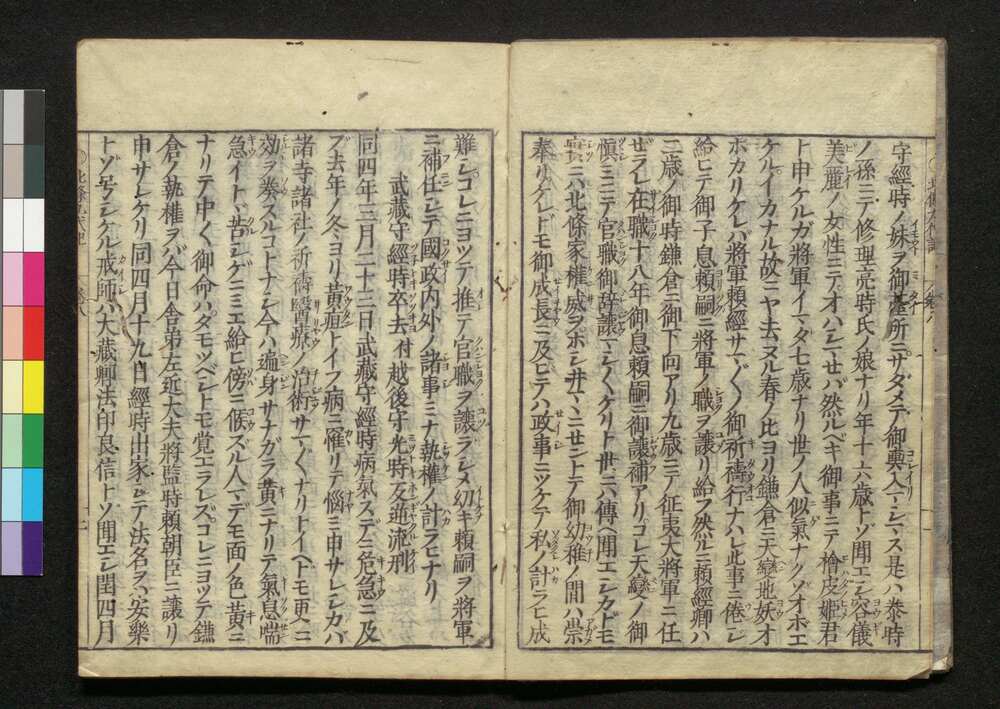 守經時ノ妹ヲ御臺所ニサダメテ御輿入マシマス是ハ泰時
ノ孫ニテ修理亮時氏ノ娘ナリ年十六歳トゾ聞エシ容儀
美麗ノ女性ニテオハシマセバ然ルベキ御事ニテ檜皮姫君
ト申ケルガ將軍イマダ七歳ナリ世ノ人似氣ナクゾオホエ
ケルイカナル故ニヤ去ヌル春ノ比ヨリ鎌倉ニ天變地妖オ
ホカリケレハ將軍頼經サマ〲御祈禱行ナハレ此事ニ倦シ
給ヒテ御子息頼嗣ニ將軍ノ職ヲ讓リ給フ然ルニ頼經卿ハ
二歳ノ御時鎌倉ニ御下向アリ九歳ニテ征夷大將軍ニ任
ゼラレ在職十八年御息頼嗣ニ御讓補アリコレ天變ノ御
愼ミニテ官職御辞讓マシ〱ケリト世ニハ傳ヘ聞エシカドモ
實ニハ北條家權威ヲホシヰマヽニセントテ御幼稚ノ間ハ崇
奉リケレドモ御成長ニ及ヒテハ政事ニツケテ私ノ計ラヒ成
難シコレニヨツテ推テ官職ヲ讓ラシメ幼キ頼嗣ヲ將軍
ニ補任シテ國政内外ノ諸事ミナ執權ノ計ラヒナリ
武藏守經時卒去付越後守光時反逆流刑
同四年三月二十三日武藏守經時病氣スデニ危急ニ及
ブ去年ノ冬ヨリ黄疸トイフ病ニ罹リテ惱ミ申サレシカバ
諸寺諸社ノ祈禱醫療ノ治術サマ〲ナリトイヘトモ更ニ
効ヲ奏スルコトナシ今ハ遍身サナガラ黄ニナリテ氣息喘
急イト苦シゲニミエ給ヒ傍ニ候スル人マデモ面ノ色黄ニ
ナリテ申ス御命ハタモツベシトモ覚エラレズコレニヨツテ鎌
倉ノ執權ヲバ今日舎弟左近大夫將監時頼朝臣ニ讓リ
申サレケリ同四月十九日經時出家シテ法名ヲハ安樂
トゾ号シケル戒師ハ大蔵卿法印良信トソ聞エシ閏四月